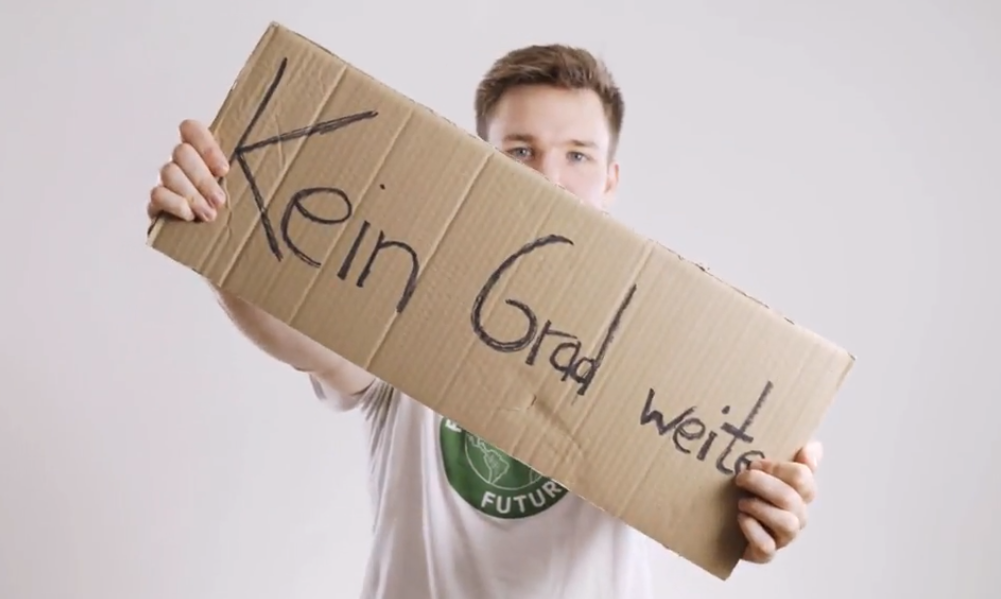 Kein Grad weite
FUTUR